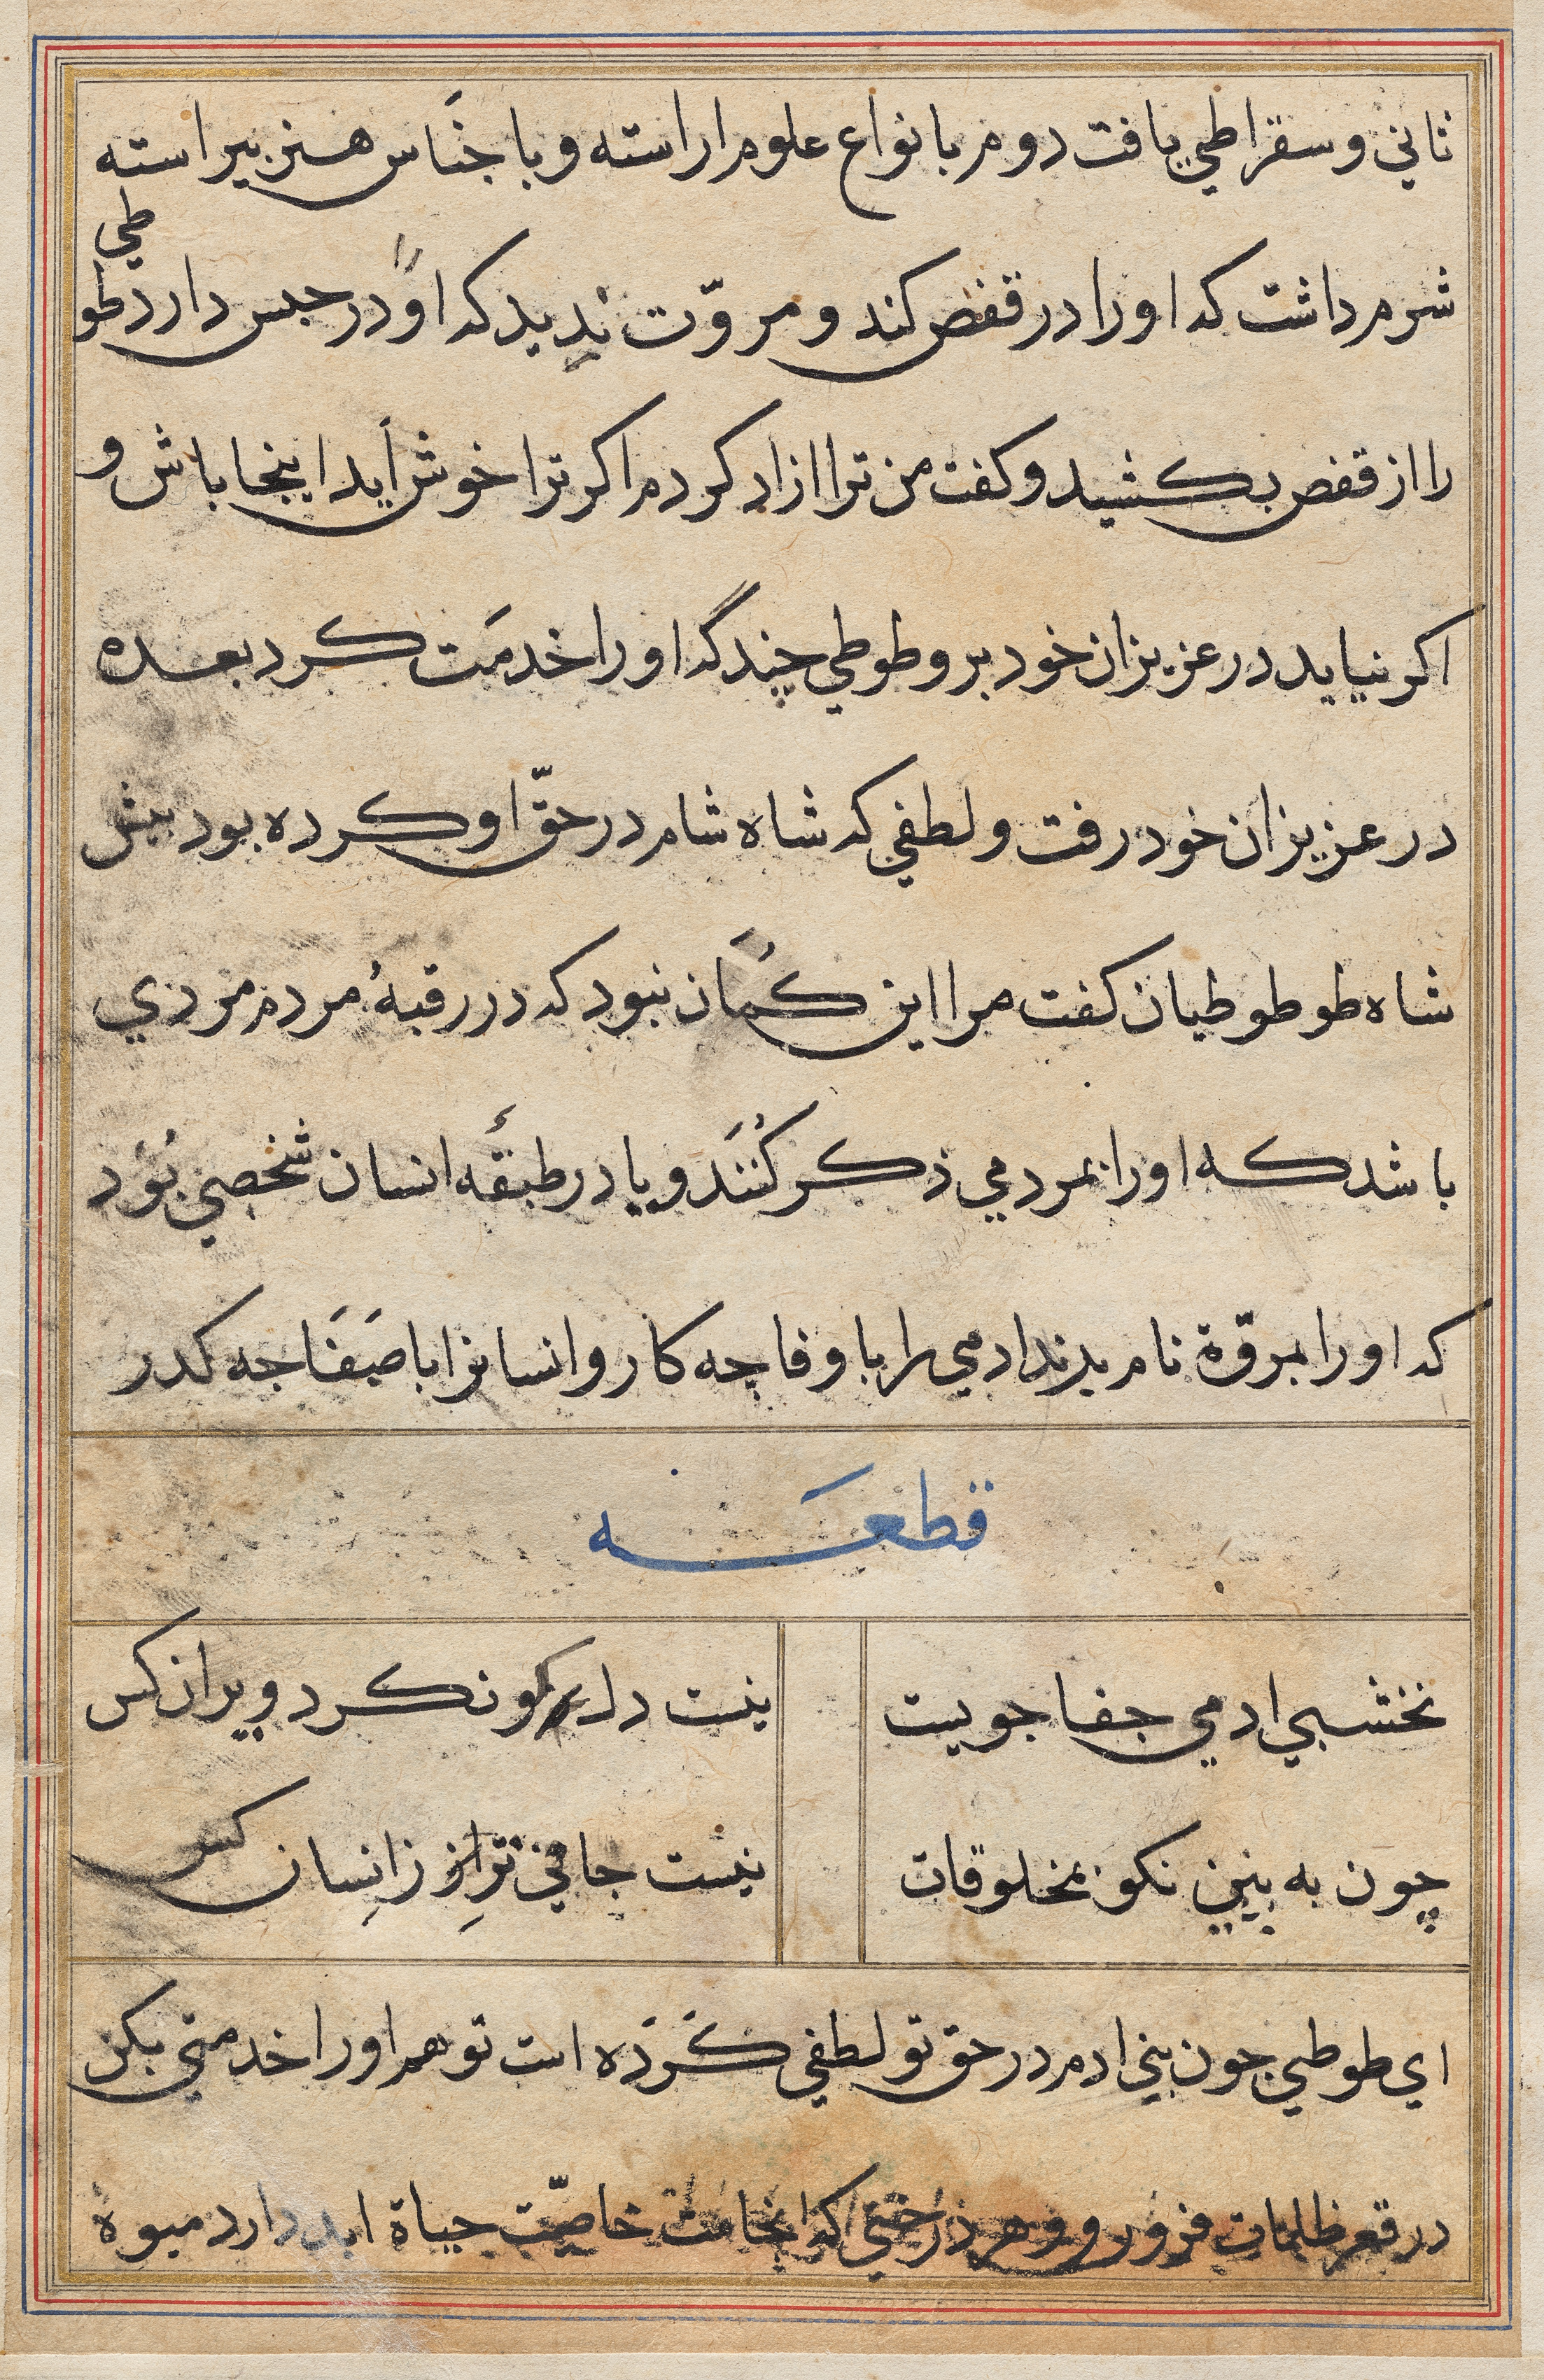 ثاني و سقراطي يافت دوم بانواع علوم اراسته و با جنَاس هنر بيراسته
شرم داشت كه او را در قفص كند و مروّت نديد كه اوً در حبس دارد طوطي
را از قفص بكشيد و كفت من ترا ازاد كردم اكر ترا خوش آيد اينجا باش و
اكر نيايد در عزيزان خود برو طوطي چند گه او را خدمَت كرد بعده
در عزيزان خود رفت و لطفي كه شاه شام در حقّ او كرده بود بيش
شاه طوطوطيان كفت مرا اين كُمَان نبود كه در رقبهٔ مردم مردي
باشد كه او را بمردمي ذكر كُنَند و يا در طبقَهٔ انسان شخصي بُوَد
كه او را بمروّة نام برند ادمي را با وفا چه كار و انسانرا با صَفَا جه كدر
قطعَه
نخشبي ادمي جفا جوييت
نيست دل كو نكرد ويران كس
چون به بيني نكو بمخلوقات
نيست جافي ترازِ زانِسان كس
اي طوطي جون بني ادم در حق تو لطفي كَردَه است تو هم او را خدمتي بكن
در قعر ظلمات فرو رو و هر درختي كه انجاست خاصيّت حياة ابد دارد ميوهٔ